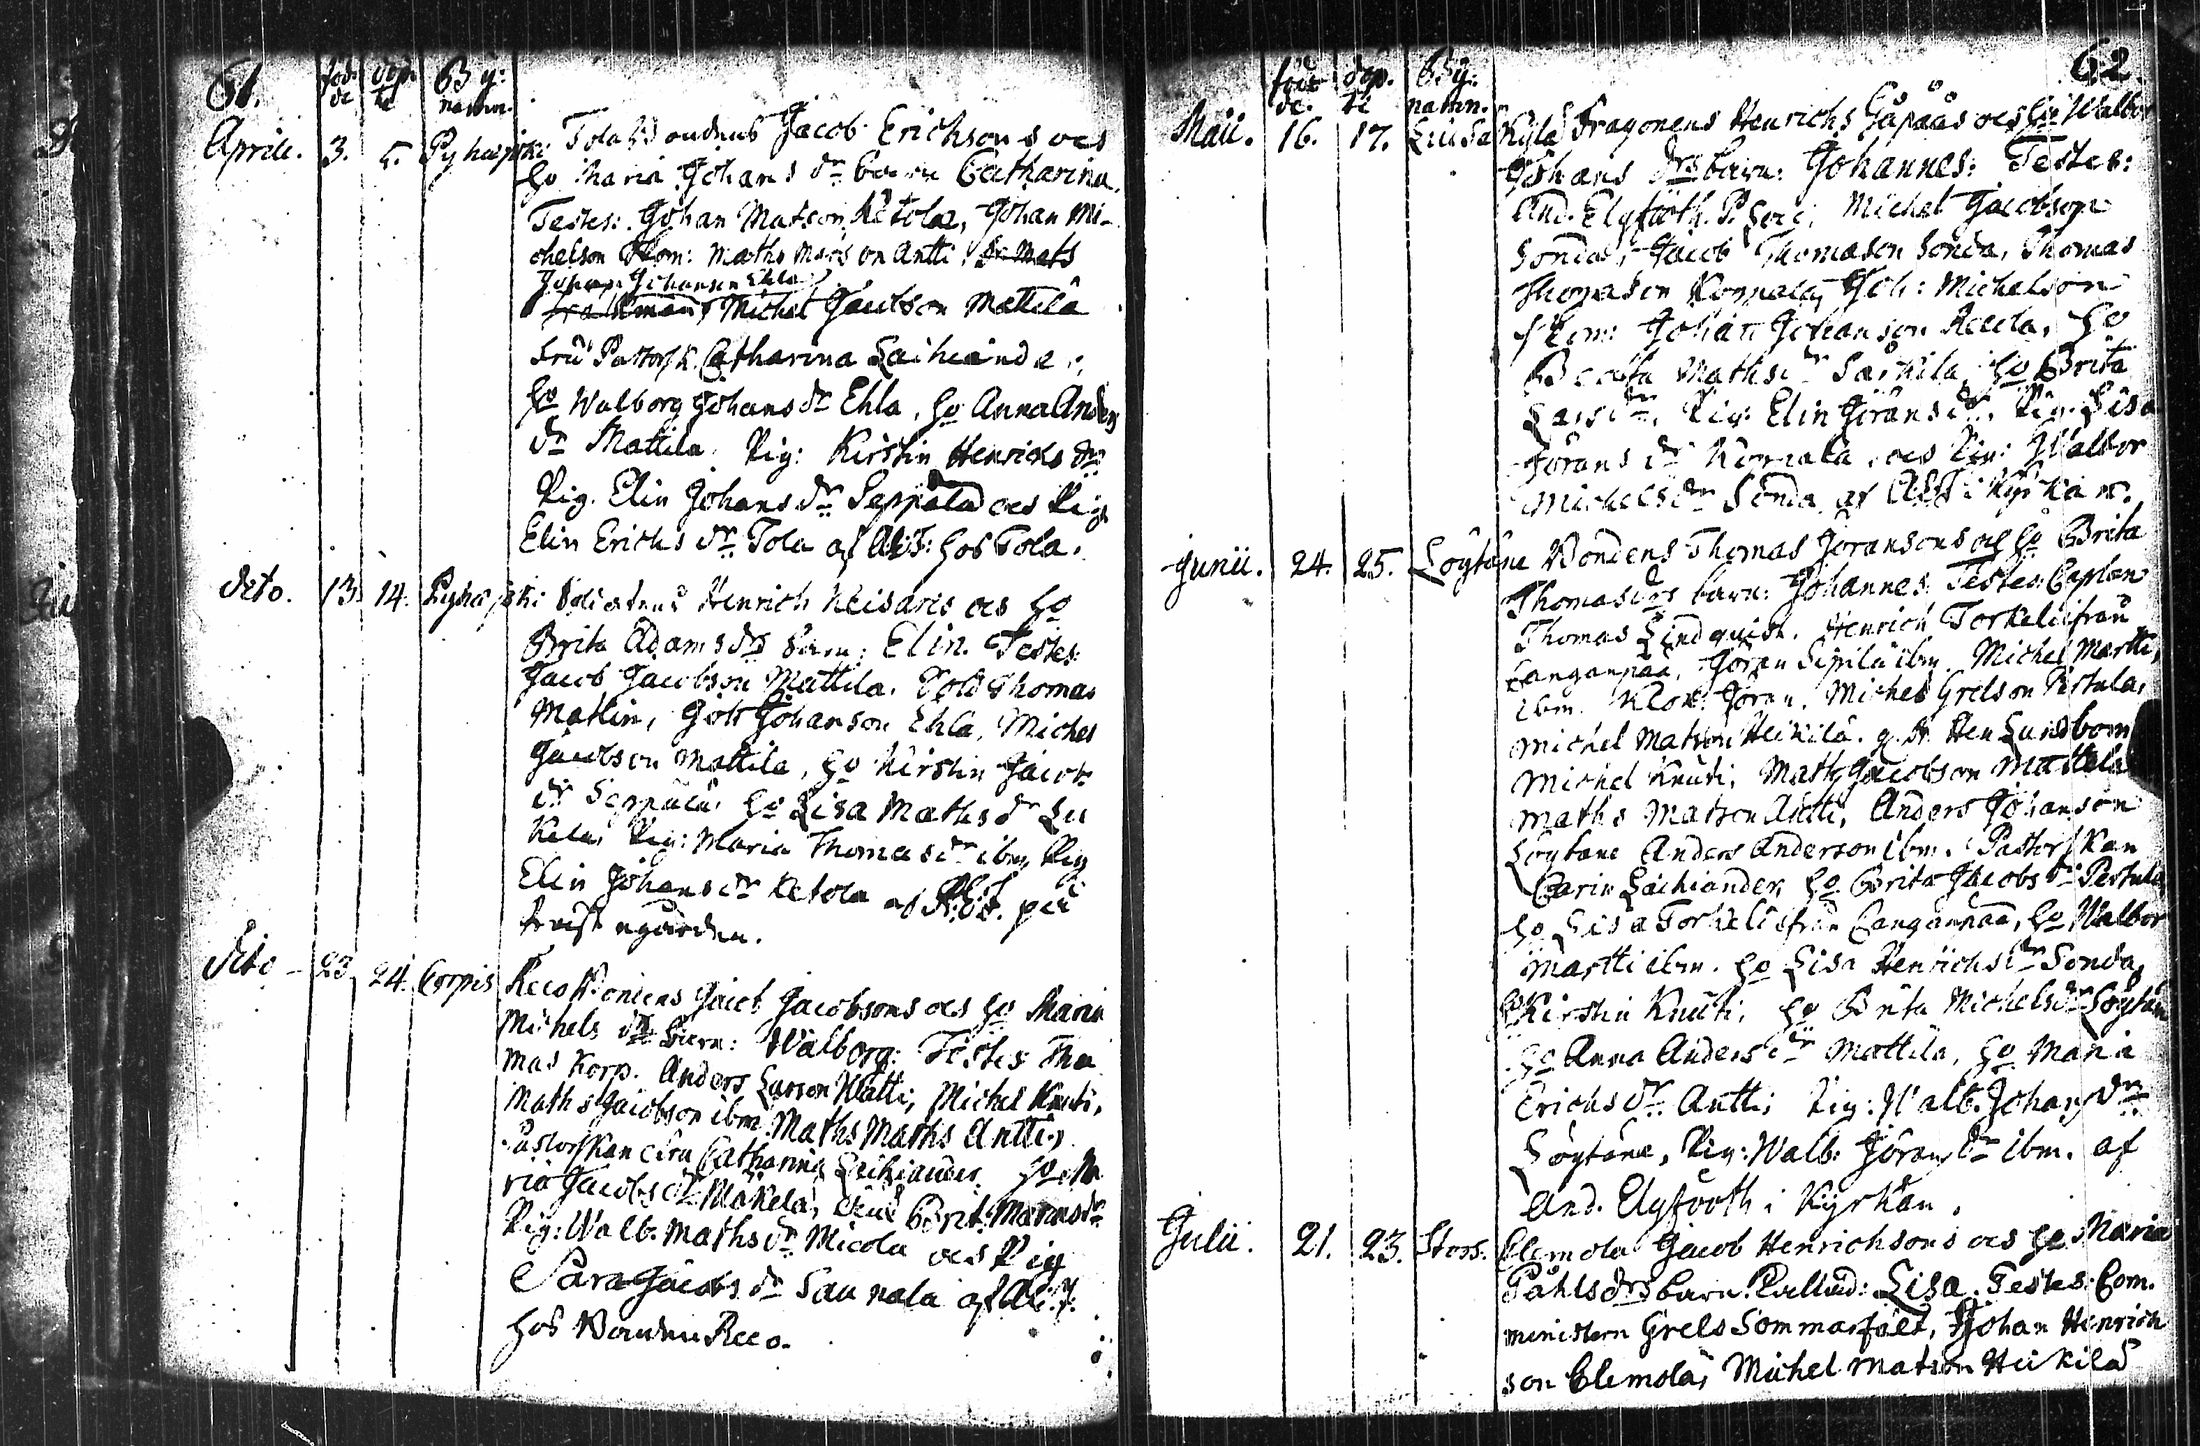 61.
föd- döp- By:
de te namn.
Aprili. 3. 5. Pyhäjoki: Tola Bondens Jacob Erichsons och
ho Maria Johans dr barn Catharina.
Testes: Johan Matson Ketola, Johan Mi-
chelson Skom: Maths Mats on Antti,
Johan Johanson Ehla
Michel Jacobson Mattila
Fru Pastorsk. Catharina Laihiander,
ho Walborg Johans dr Ehla, ho Anna Anders
dr Mattila. Pig: Kirstin Henrichs dr
Pig. Elin Johans dr Seppälä och Pig
Elin Erichs dr Tola af A:E: hos Tola.
dito. 13. 14. Pyhäjoki Henrich Keisaris och ho
Brita Adams drs barn: Elin. Testes:
Jacob Jacobson Mattila. Sold Thomas
Matlin, Joh Johanson Ehla, Michel
Jacobson Mattila, ho Kirstin Jacobs
dr Seppälä, ho Lisa Maths dr Lu
kela, Pig: Maria Thomas dr ibm, Pig
Elin Johans dr Ketola af A:E:
dito - 23. 24. Corpis Reco Bondens Jacob Jacobsons och ho Maria
Michels drs barn: Walborg: Testes Tho
mas Korp. Anders Larson Klatti, Michel Knuti,
Maths Jacobson ibm. Maths Maths Antti,
Pastorskan Catharina Laihiander. ho Ma
ria Jacobs dr Mäkelä, Brit. Matts dr
Pig: Walb. Maths dr Micola och Pig
Sara Jacobs dr Saunala af A:E:
hos Bonden Reco.
62.
föd- döp. By:
de. te namn.
Maii. 16. 17. Kylä Dragonens Henrichs och ho Walbor
Johans drs barn: Johannes: Testes:
And. Elgfooth. Michel Jacobson
Sonda, Jacob Thomason Sonda, Thomas
Thomason Joh: Michelson
Skom: Johan Johanson Ho
Beata Maths dr Särkilä, ho Brita
Lars dr, Pig: Elin Jörans dr, Pig: Lisa
Jörans dr och Pig: Walbor
Michels dr Sonda af A:E: i Kyrkan.
Junii. 24. 25. Löytäne Bondens Thomas Jöransons och ho Brita
Thomas drs barn: Johannes. Testes: Caplan
Thomas Lindquist. Henrich Torkeli ifrån
Canganpää, Jöran Sipilä ibm. Michel Martti,
ibm. Klok: Jöran. Michel Grelson Pertula,
Michel Matson Heikilä. Hen Lundbom
Michel Knuti, Maths Jacobson Mattila
Maths Matson Antti, Anders Johanson
Löytäne Anders Anderson ibm. Pastorskan
Carin Laihiander, ho Brita Jacobs dr Pertula
ho Lisa Torkeli ifrån Canganpää, ho Walbor
Martti ibm. ho Lisa Henrichs dr Sonda,
ho Kirstin Knuti, ho Brita Michels dr Löytän
ho Anna Anders dr Mattila, ho Maria
Erichs dr Antti, Pig: Walb. Johans dr
Löytäne, Pig: Walb: Jörans dr ibm. af
And. Elgfooth i Kyrkan.
Julii. 21. 23. Stors. Clemola Jacob Henrichsons och ho Maria
Påhls drs barn. Kallad: Lisa. Testes: Com.
ministern Grels Sommarfält, Johan Henrich
son Clemola, Michel Matson Heikilä